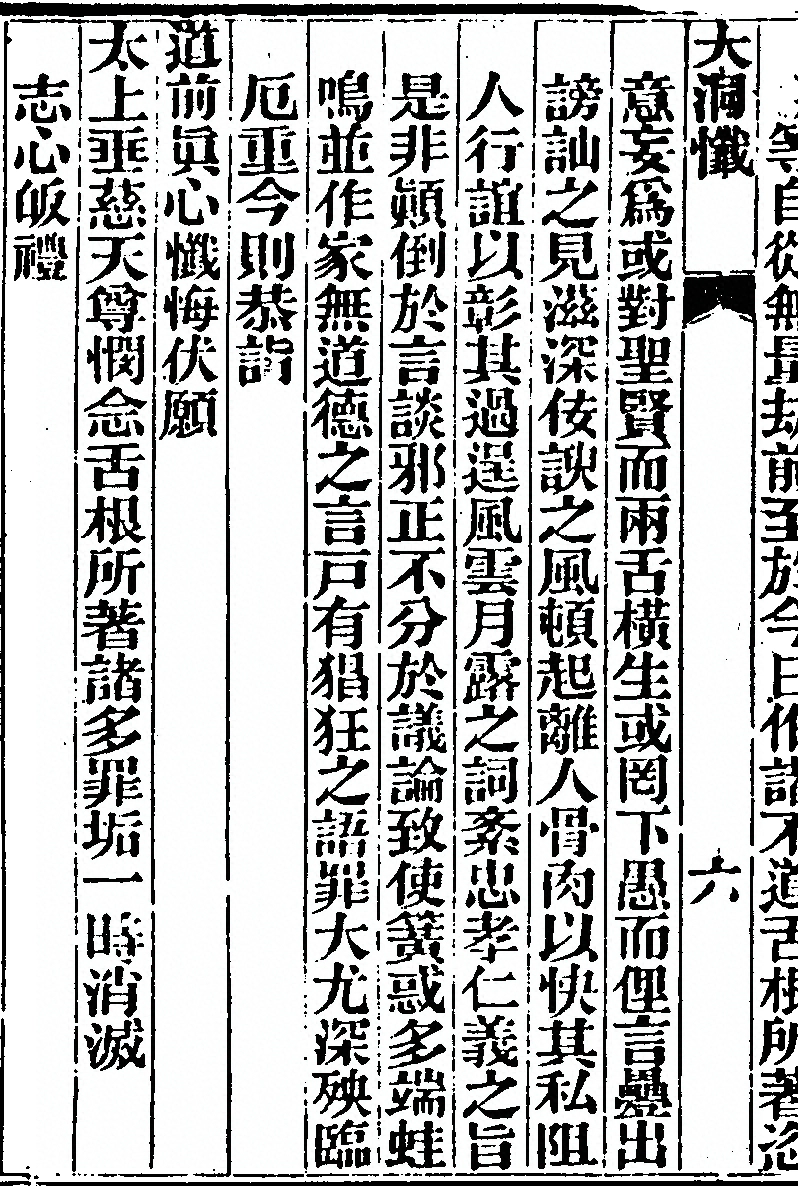 等自從無量劫前至於今日作諸不道舌根所著恣
大洞懺 六
意妄爲或對聖賢而兩舌橫生或罔下愚而俚言疊出
謗訕之見滋深佞諛之風頓起離人骨肉以快其私阻
人行誼以彰其過逞風雲月露之詞紊忠孝仁義之旨
是非顚倒於言談邪正不分於議論致使簧惑多端蛙
鳴並作家無道德之言戸有猖狂之語罪大尤深殃臨
厄重今則恭詣
道前眞心懺悔伏願
太上垂慈天尊憫念舌根所著諸多罪垢一時消滅
志心皈禮